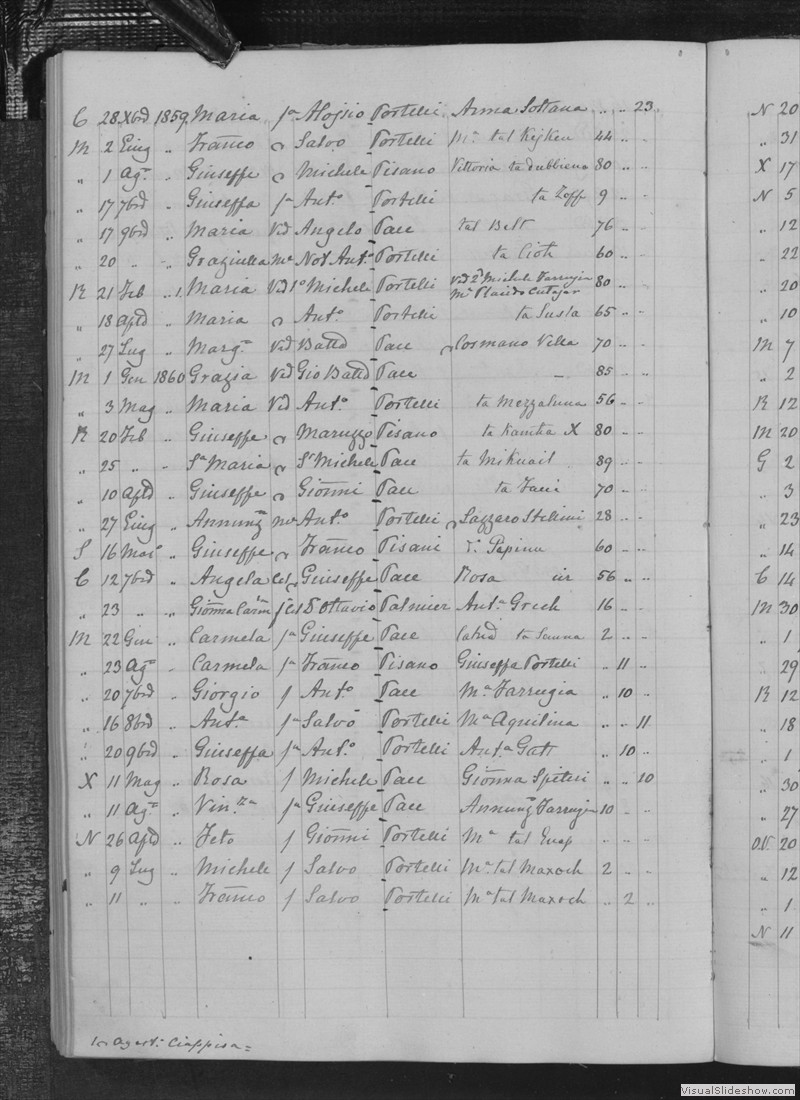 C 28 Xbrd 1859 Maria fa Aloysio Portelli Anna Soltana .. .. 23
M 2 Ging .. Franco Salvo Portelli Ma tal Kejken 44 .. ..
.. 1 Aga .. Giuseppe Michele Pisano Vittoria ta dubbiena 80 .. ..
.. 17 7brd .. Giuseppa fa Anto Portelli ta Zoff 9 .. ..
.. 17 9brd .. Maria Vid Angelo Pace tal Belt 76 .. ..
.. 20 .. .. Graziulla me Not Anto Portelli ta Cioh 60 .. ..
R 21 Feb .. Maria Vid 1o Michele Portelli Vid 2o Michele Farrugia Mo Placido Cutajar 80 .. ..
.. 18 Aprd .. Maria Anto Portelli ta Susla 65 .. ..
.. 27 Lug .. Marga Vid Battd Pace Cosmano Vella 70 .. ..
M 1 Gen 1860 Grazia Vid Gio Battd Pace — 85 .. ..
.. 3 Mag .. Maria Vid Anto Portelli ta Mezzaluna 56 .. ..
R 20 Feb .. Giuseppe Maruzzo Pisano ta Kamha X 80 .. ..
.. 25 .. .. Sa Maria Sr Michele Pace ta Mikuail 89 .. ..
.. 10 Aprd .. Giuseppe Gionni Pace ta 70 .. ..
.. 27 Ging .. Annunza me Anto Portelli Lazzaro Stellini 28 .. ..
S 16 Mar .. Giuseppe Franco Pisani Pepinu 60 .. ..
C 12 7brd .. Angela Cel Giuseppe Pace Rosa 56 .. ..
.. 23 .. .. Gionna Carm f Cel D Ottavio Palmier Anta Grech 16 .. ..
M 22 Gen .. Carmela fa Giuseppe Pace Catrid ta Sauna 2 .. ..
.. 23 Aga .. Carmela fa Franco Pisano Giuseppa Portelli .. 11 ..
.. 20 7brd .. Giorgio f Anto Pace Ma Farrugia .. 10 ..
.. 16 8brd .. Anta fa Salvo Portelli Ma Aquilina .. .. 11
.. 20 9brd .. Giuseppa fa Anto Portelli Anta Gatt .. 10 ..
X 11 Mag .. Rosa f Michele Pace Gionna Spiteri .. .. 10
.. 11 Aga .. Vinza fa Giuseppe Pace Annunza Farrugia 10 .. ..
N 26 Aprd .. Feto f Gionni Portelli Ma tal .. ..
.. 9 Lug .. Michele f Salvo Portelli Ma tal Maxoch 2 .. ..
.. 11 .. .. Franco f Salvo Portelli Ma tal Maxoch .. 2 ..
Agosti Ciappisa =
N 20
.. 31
X 17
N 5
.. 12
.. 22
.. 20
.. 10
M 7
.. 2
R 12
M 20
G 2
.. 3
.. 23
.. 14
C 14
M 30
.. 1
.. 29
R 12
.. 18
.. 1
.. 30
.. 27
O.V. 20
.. 12
.. 1
N 11
VisualSlideshow.com